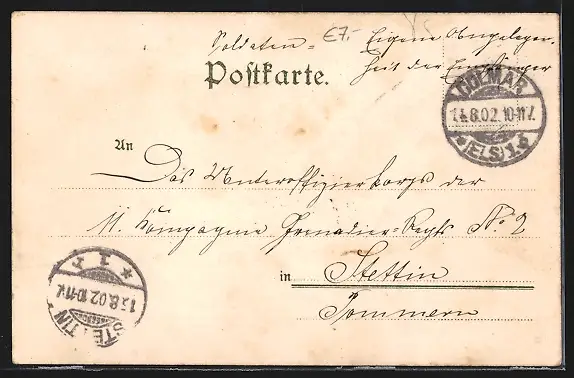 Soldaten= €7.- Eigene Angelegen-
Postkarte. heit des Empfänger
COLMAR
14.8.02.10-11V.
*(ELS)1.b
An
Das Unteroffizierkorps der
11. Kompagnie Grenadier=Regts № 2
in Stettin
Pommern
STETTIN
13.8.02.10-11V.
* 1 *